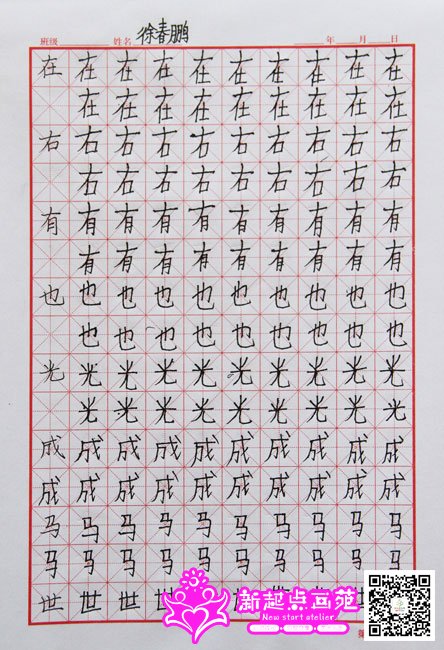 班级 姓名 徐春鹏 年 月 日
在 在 在 在 在 在 在 在 在 在
在 在 在 在 在 在 在 在 在
右 右 右 右 右 右 右 右 右 右
右 右 右 右 右 右 右 右 右
有 有 有 有 有 有 有 有 有 有
有 有 有 有 有 有 有 有 有
也 也 也 也 也 也 也 也 也 也
也 也 也 也 也 也 也 也 也
光 光 光 光 光 光 光 光 光 光
光 光 光 光 光 光 光 光 光
成 成 成 成 成 成 成 成 成 成
成 成 成 成 成 成 成 成 成 成
马 马 马 马 马 马 马 马 马 马
马 马 马 马 马 马 马 马 马 马
世 世 世 世
新起点画苑
New start atelier
第